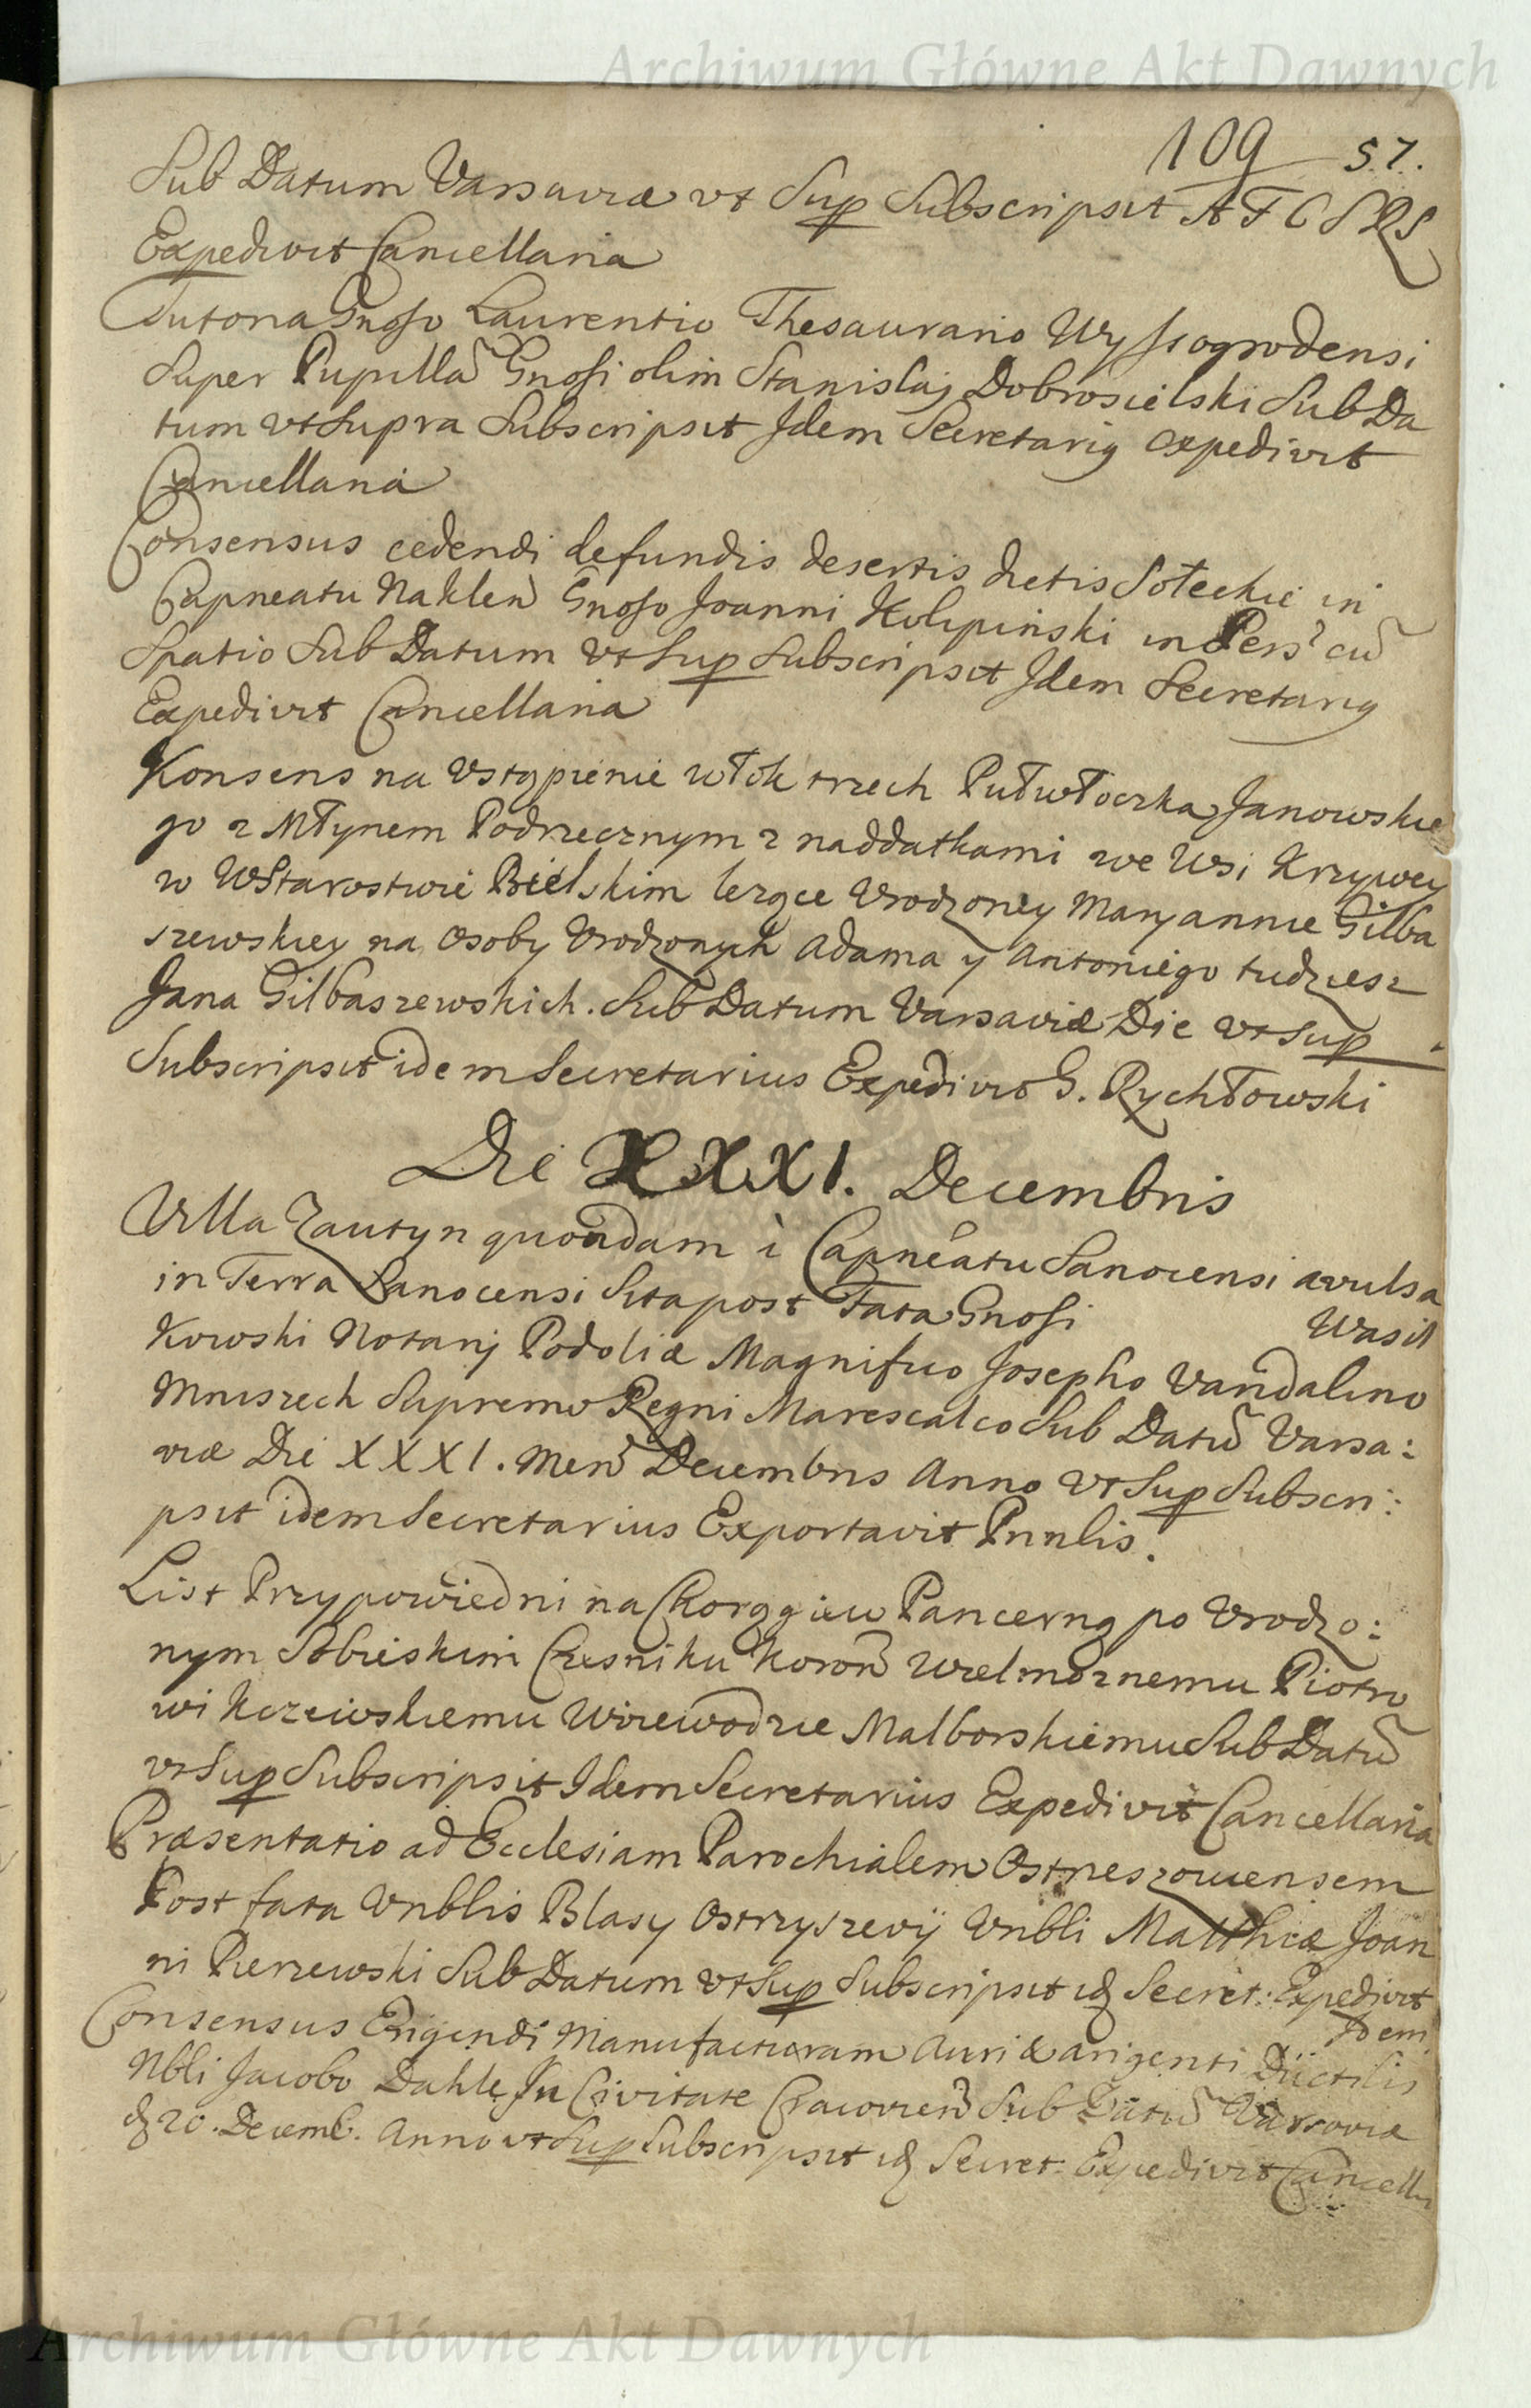 Archiwum Główne Akt Dawnych
109 57.
Sub Datum Varsaviæ vt Sup Subscripsit A F C S R S
Expedivit Cancellaria
Tutoria Gnoso Laurentio Thesaurario Wyssogrodensi
Super Pupilla Gnosi olim Stanislaj Dobrosielski Sub Da
tum vt Supra Subscripsit Idem Secretarig expedivit
Cancellaria
Consensus cedendi de fundis desertis dictis Sołeckie in
Capneatu Naklen Gnoso Joanni Kolipiński in Pers cũ
Spatio Sub Datum vt Sup Subscripsit Idem Secretarig
Expedivit Cancellaria
Konsens na Vstąpienie włok trzech Pułwłoczka Janowskie
go z Młynem Podrzecznym z naddatkami we Wsi Krzywey
w WStarostwie Bielskim lezące Vrodzoney Maryannie Gilba
szewskiey na Osoby Vrodzonych Adama y Antoniego tudziesz
Jana Gilbaszewskich. Sub Datum Varsaviæ Die vt Sup
Subscripsit idem Secretarius Expedivit G. Rychłowski
Die XXXI. Decembris
Villa Zautyn quondam è Capneatu Sanocensi avulsa
in Terra Sanocensi Sita post Fata Gnosi Wasil
Kowski Notarij Podoliæ Magnifico Josepho Vandalino
Mniszech Supremo Regni Marescalco Sub Datũ Varsa:
viæ Die XXXI. Men Decembris Anno vt Sup Subscri:
psit idem Secretarius Exportavit Pnnlis.
List Przypowiedni na Chorągiew Pancerną po Vrodzo:
nym Sobieskim Czesniku Koron Wielmoznemu Piotro
wi Kczewskiemu Woiewodzie Malborskiemu Sub Datũ
vt Sup Subscripsit Idem Secretarius Expedivit Cancellaria
Præsentatio ad Ecclesiam Parochialem Ostrieszoviensem
Post fata Vnblis Blasy Ostrzyszevij Vnbli Matthiæ Joan
ni Pierzewski Sub Datum vt Sup Subscripsit id Secret: Expedivit
Idem
Consensus Erigendi Manufacturam Auri & argenti Ductilis
Nbli Jacobo Dahle In Civitate Cracovien Sub Datũ Varsoviæ
d 20. Decemb. Anno vt Sup Subscripsit id Secret: Expedivit Cancella
Archiwum Główne Akt Dawnych